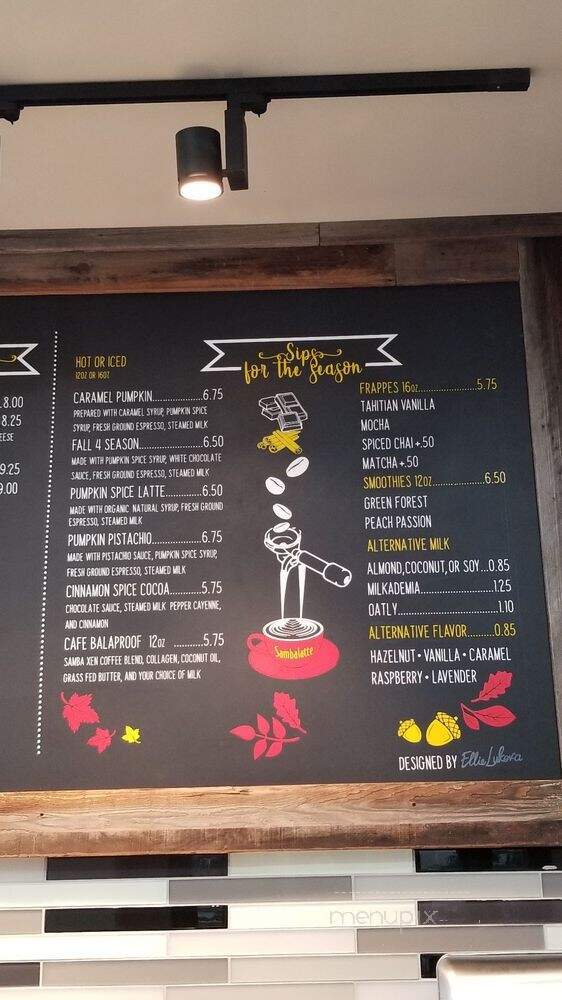 8.00
8.25
EESE
9.25
9.00
Sips
for the Season
HOT OR ICED
12OZ OR 16OZ
CARAMEL PUMPKIN...............6.75
PREPARED WITH CARAMEL SYRUP, PUMPKIN SPICE
SYRUP, FRESH GROUND ESPRESSO, STEAMED MILK
FALL 4 SEASON...................6.50
MADE WITH PUMPKIN SPICE SYRUP, WHITE CHOCOLATE
SAUCE, FRESH GROUND ESPRESSO, STEAMED MILK
PUMPKIN SPICE LATTE.............6.50
MADE WITH ORGANIC NATURAL SYRUP, FRESH GROUND
ESPRESSO, STEAMED MILK
PUMPKIN PISTACHIO...............6.75
MADE WITH PISTACHIO SAUCE, PUMPKIN SPICE SYRUP,
FRESH GROUND ESPRESSO, STEAMED MILK
CINNAMON SPICE COCOA...........5.75
CHOCOLATE SAUCE, STEAMED MILK PEPPER CAYENNE,
AND CINNAMON
CAFE BALAPROOF 12OZ ...........5.75
SAMBA XEN COFFEE BLEND, COLLAGEN, COCONUT OIL,
GRASS FED BUTTER, AND YOUR CHOICE OF MILK
Sambalatte
FRAPPES 16OZ.....................5.75
TAHITIAN VANILLA
MOCHA
SPICED CHAI +.50
MATCHA +.50
SMOOTHIES 12OZ...................6.50
GREEN FOREST
PEACH PASSION
ALTERNATIVE MILK
ALMOND, COCONUT, OR SOY...0.85
MILKADEMIA......................1.25
OATLY............................1.10
ALTERNATIVE FLAVOR.........0.85
HAZELNUT • VANILLA • CARAMEL
RASPBERRY • LAVENDER
DESIGNED BY Ellie Lukova
menupix